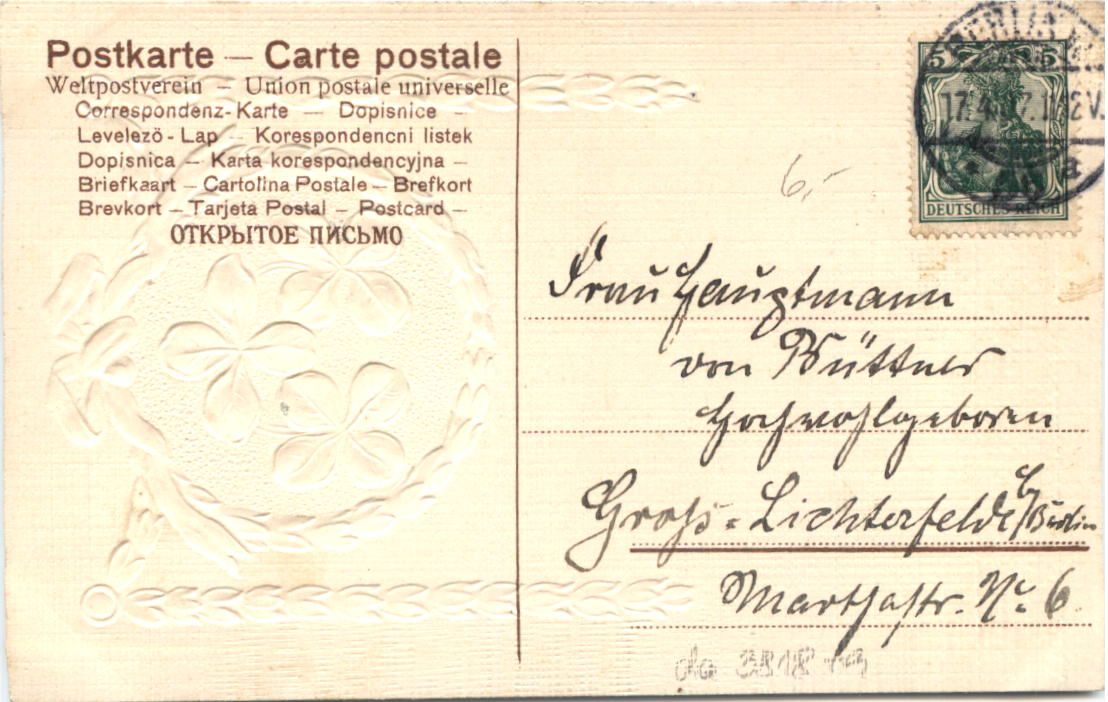 Postkarte — Carte postale
Weltpostverein — Union postale universelle
Correspondenz-Karte — Dopisnice –
Levelezö-Lap — Korespondencni listek
Dopisnica — Karta korespondencyjna –
Briefkaart — Cartolina Postale — Brefkort
Brevkort — Tarjeta Postal — Postcard –
ОТКРЫТОЕ ПИСЬМО
BERLIN
5 5
DEUTSCHES REICH
6,-
Frau Hauptmann
von Büttner
Hochwohlgeboren
Groß-Lichterfelde b/Berlin
Marthastr. No 6.